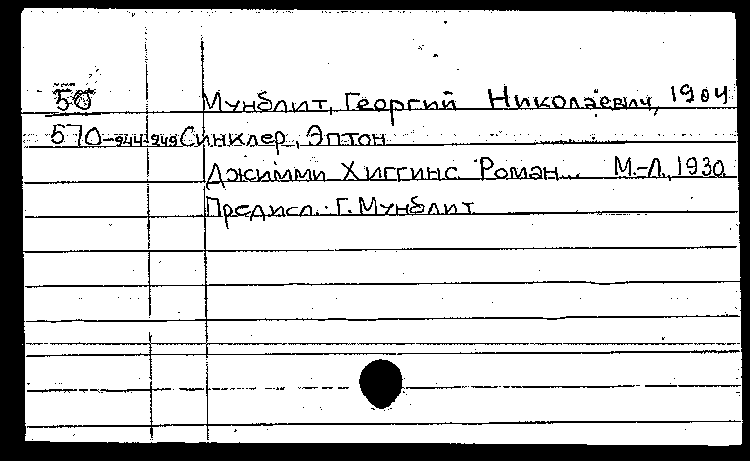 50 Мунблит, Георгий Николаевич, 1904
570-944-949 Синклер, Эптон
Джимми Хиггинс Роман... М.-Л., 1930
Предисл.: Г. Мунблит